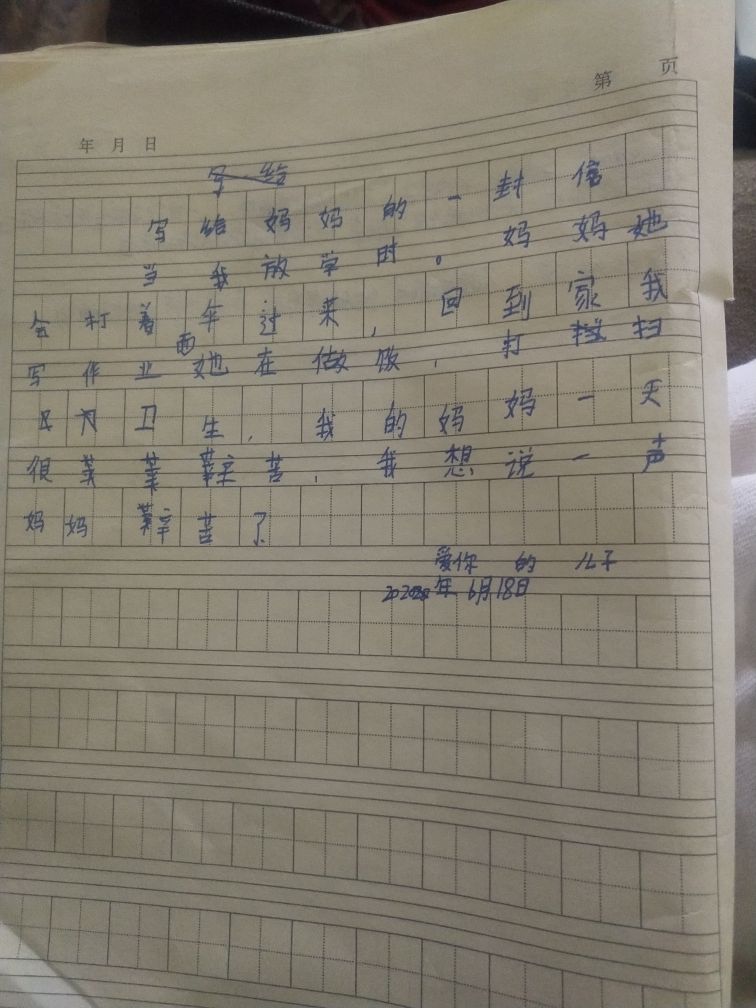 第 页
年 月 日
写给妈妈的一封信
当我放学时。妈妈她
会打着伞过来，回到家我
写作业而她在做饭，打扫
卫生，我的妈妈一天
很辛苦，我想说一声
妈妈辛苦了
爱你的儿子
年6月18日